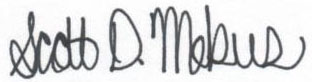 Scott D. Mekus